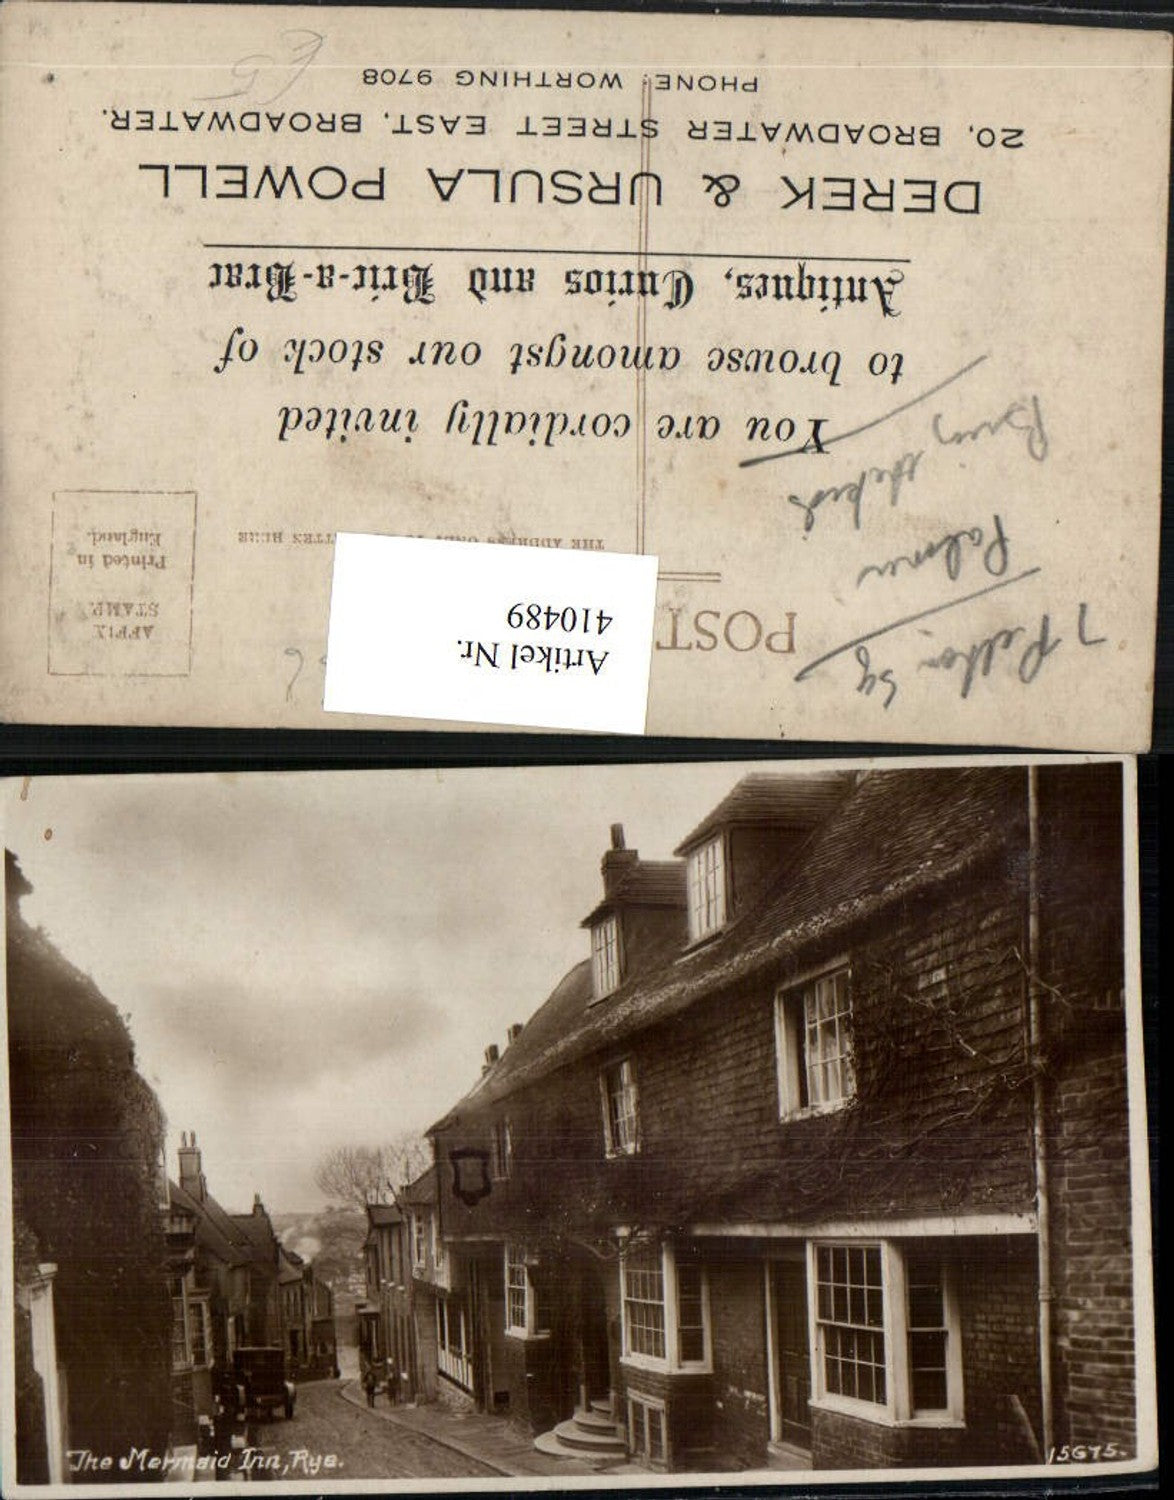 7 Pelham Sq
Palmer
POST
Artikel Nr.
410489
AFFIX
STAMP.
Printed in
England.
THE ADDRESS ONLY HERE
You are cordially invited
to browse amongst our stock of
Antiques, Curios and Bric-a-Brac
DEREK & URSULA POWELL
20, BROADWATER STREET EAST, BROADWATER.
PHONE: WORTHING 9708
The Mermaid Inn, Rye.
15675.